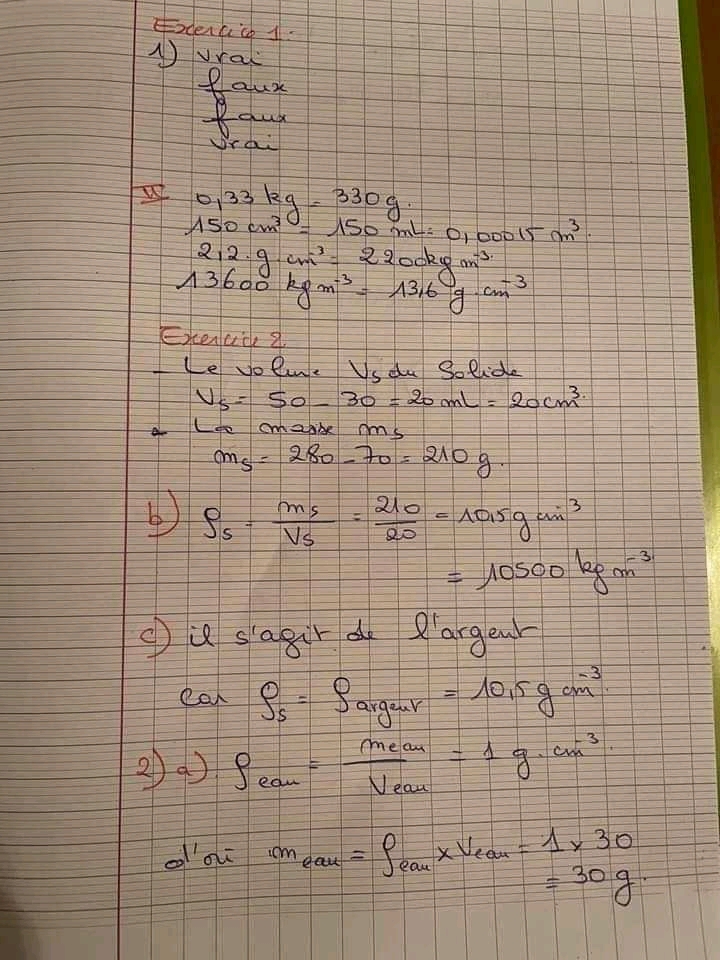 Exercice 1.
1) vrai
faux
faux
vrai
II 0,33 kg = 330 g.
150 cm³ = 150 mL = 0,00015 m³.
2,2. g. cm⁻³ = 2200 kg m⁻³.
13600 kg m⁻³ = 13,6 g. cm⁻³
Exercice 2
- Le volume Vs du Solide
Vs = 50 - 30 = 20 mL = 20 cm³.
- La masse ms
ms = 280 - 70 = 210 g.
b) ρs = ms/Vs = 210/20 = 10,5 g cm⁻³
= 10500 kg m⁻³
c) il s'agit de l'argent
car ρs = ρargent = 10,5 g cm⁻³.
2) a). ρeau = meau/Veau = 1 g. cm⁻³.
d'où meau = ρeau x Veau = 1 x 30
= 30 g.